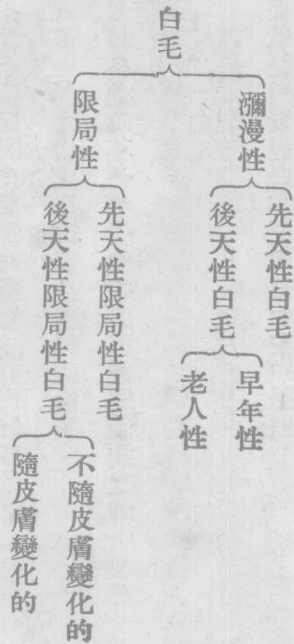 白毛
瀰漫性
先天性白毛
後天性白毛
早年性
老人性
限局性
先天性限局性白毛
後天性限局性白毛
不隨皮膚變化的
隨皮膚變化的